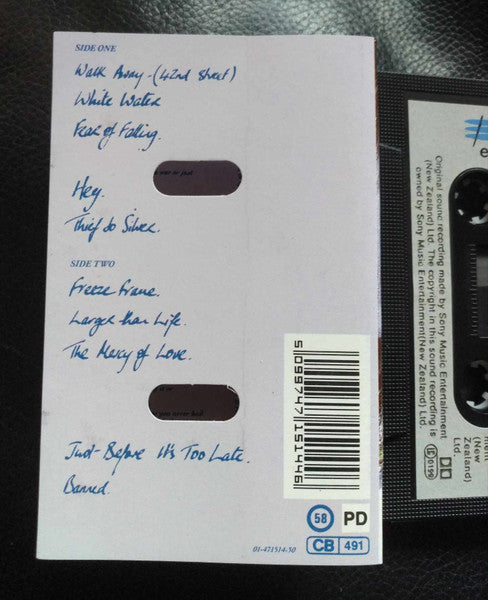 SIDE ONE
Walk Away - (42nd Street)
White Water
Fear of Falling.
Hey.
Thief to Silver.
SIDE TWO
Freeze Frame.
Larger than Life.
The Mercy of Love.
you never had
Just Before It's Too Late.
Banned.
5099747151446
58 PD
CB 491
01-471514-50
Original sound recording made by Sony Music Entertainment
(New Zealand) Ltd. The copyright in this sound recording is
owned by Sony Music Entertainment(New Zealand) Ltd.
0199
(New
Zealand)
Ltd.